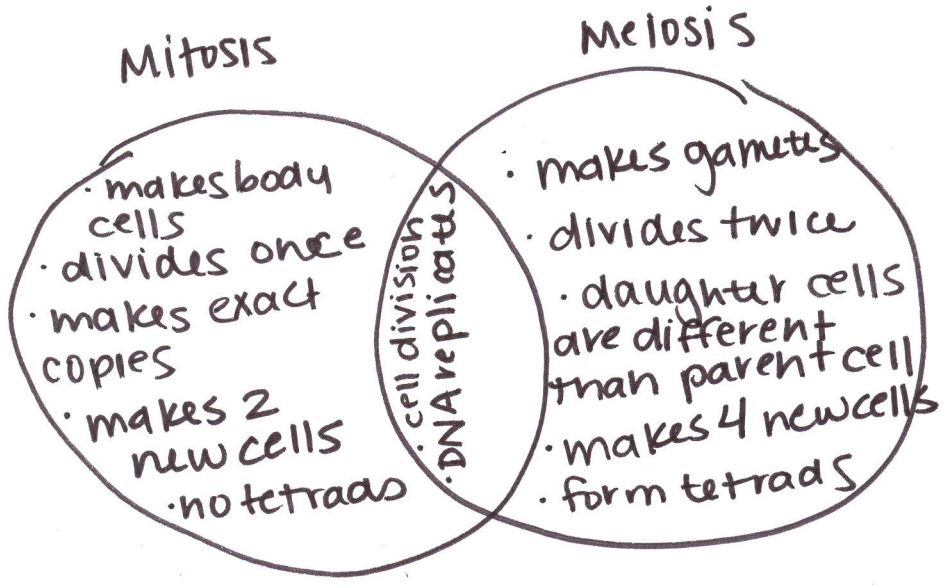 Mitosis
Meiosis
· makes body
cells
· divides once
· makes exact
copies
· makes 2
new cells
· no tetrads
· cell division
· DNA replicates
· makes gametes
· divides twice
· daughter cells
are different
than parent cell
· makes 4 new cells
· form tetrads